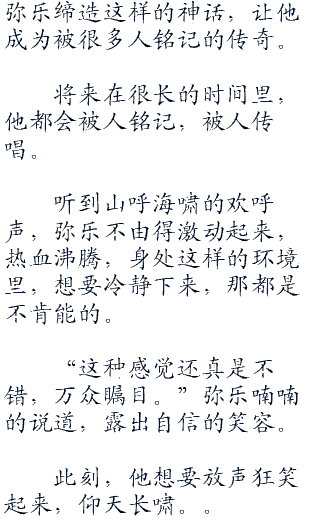 弥乐缔造这样的神话，让他
成为被很多人铭记的传奇。
将来在很长的时间里，
他都会被人铭记，被人传
唱。
听到山呼海啸的欢呼
声，弥乐不由得激动起来，
热血沸腾，身处这样的环境
里，想要冷静下来，那都是
不肯能的。
“这种感觉还真是不
错，万众瞩目。”弥乐喃喃
的说道，露出自信的笑容。
此刻，他想要放声狂笑
起来，仰天长啸。。